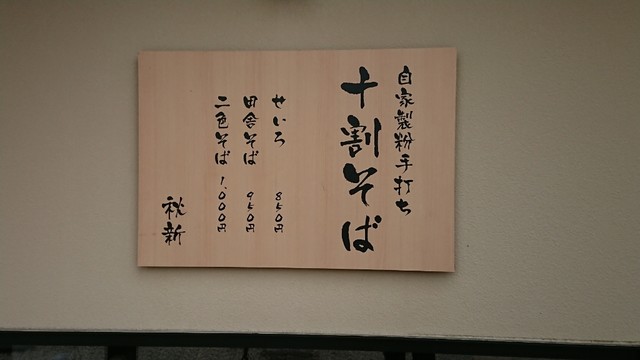 自家製粉手打ち
十割そば
せいろ 850円
田舎そば 950円
二色そば 1,000円
秋新